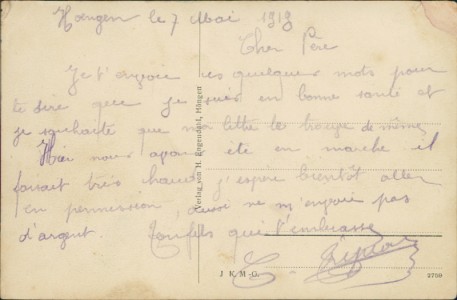 Hœngen le 7 Mai 1919
Cher Père
Je t'envoie ces quelques mots pour
te dire que je suis en bonne santé et
je souhaite que ma lettre te trouve de même
Hier nous avons été en marche il
faisait très chaud j'espère bientôt aller
en permission, aussi ne m'envoie pas
d'argent. Ton fils qui t'embrasse
Verlag von H. Engendorf, Höngen
J K M-G.
2750